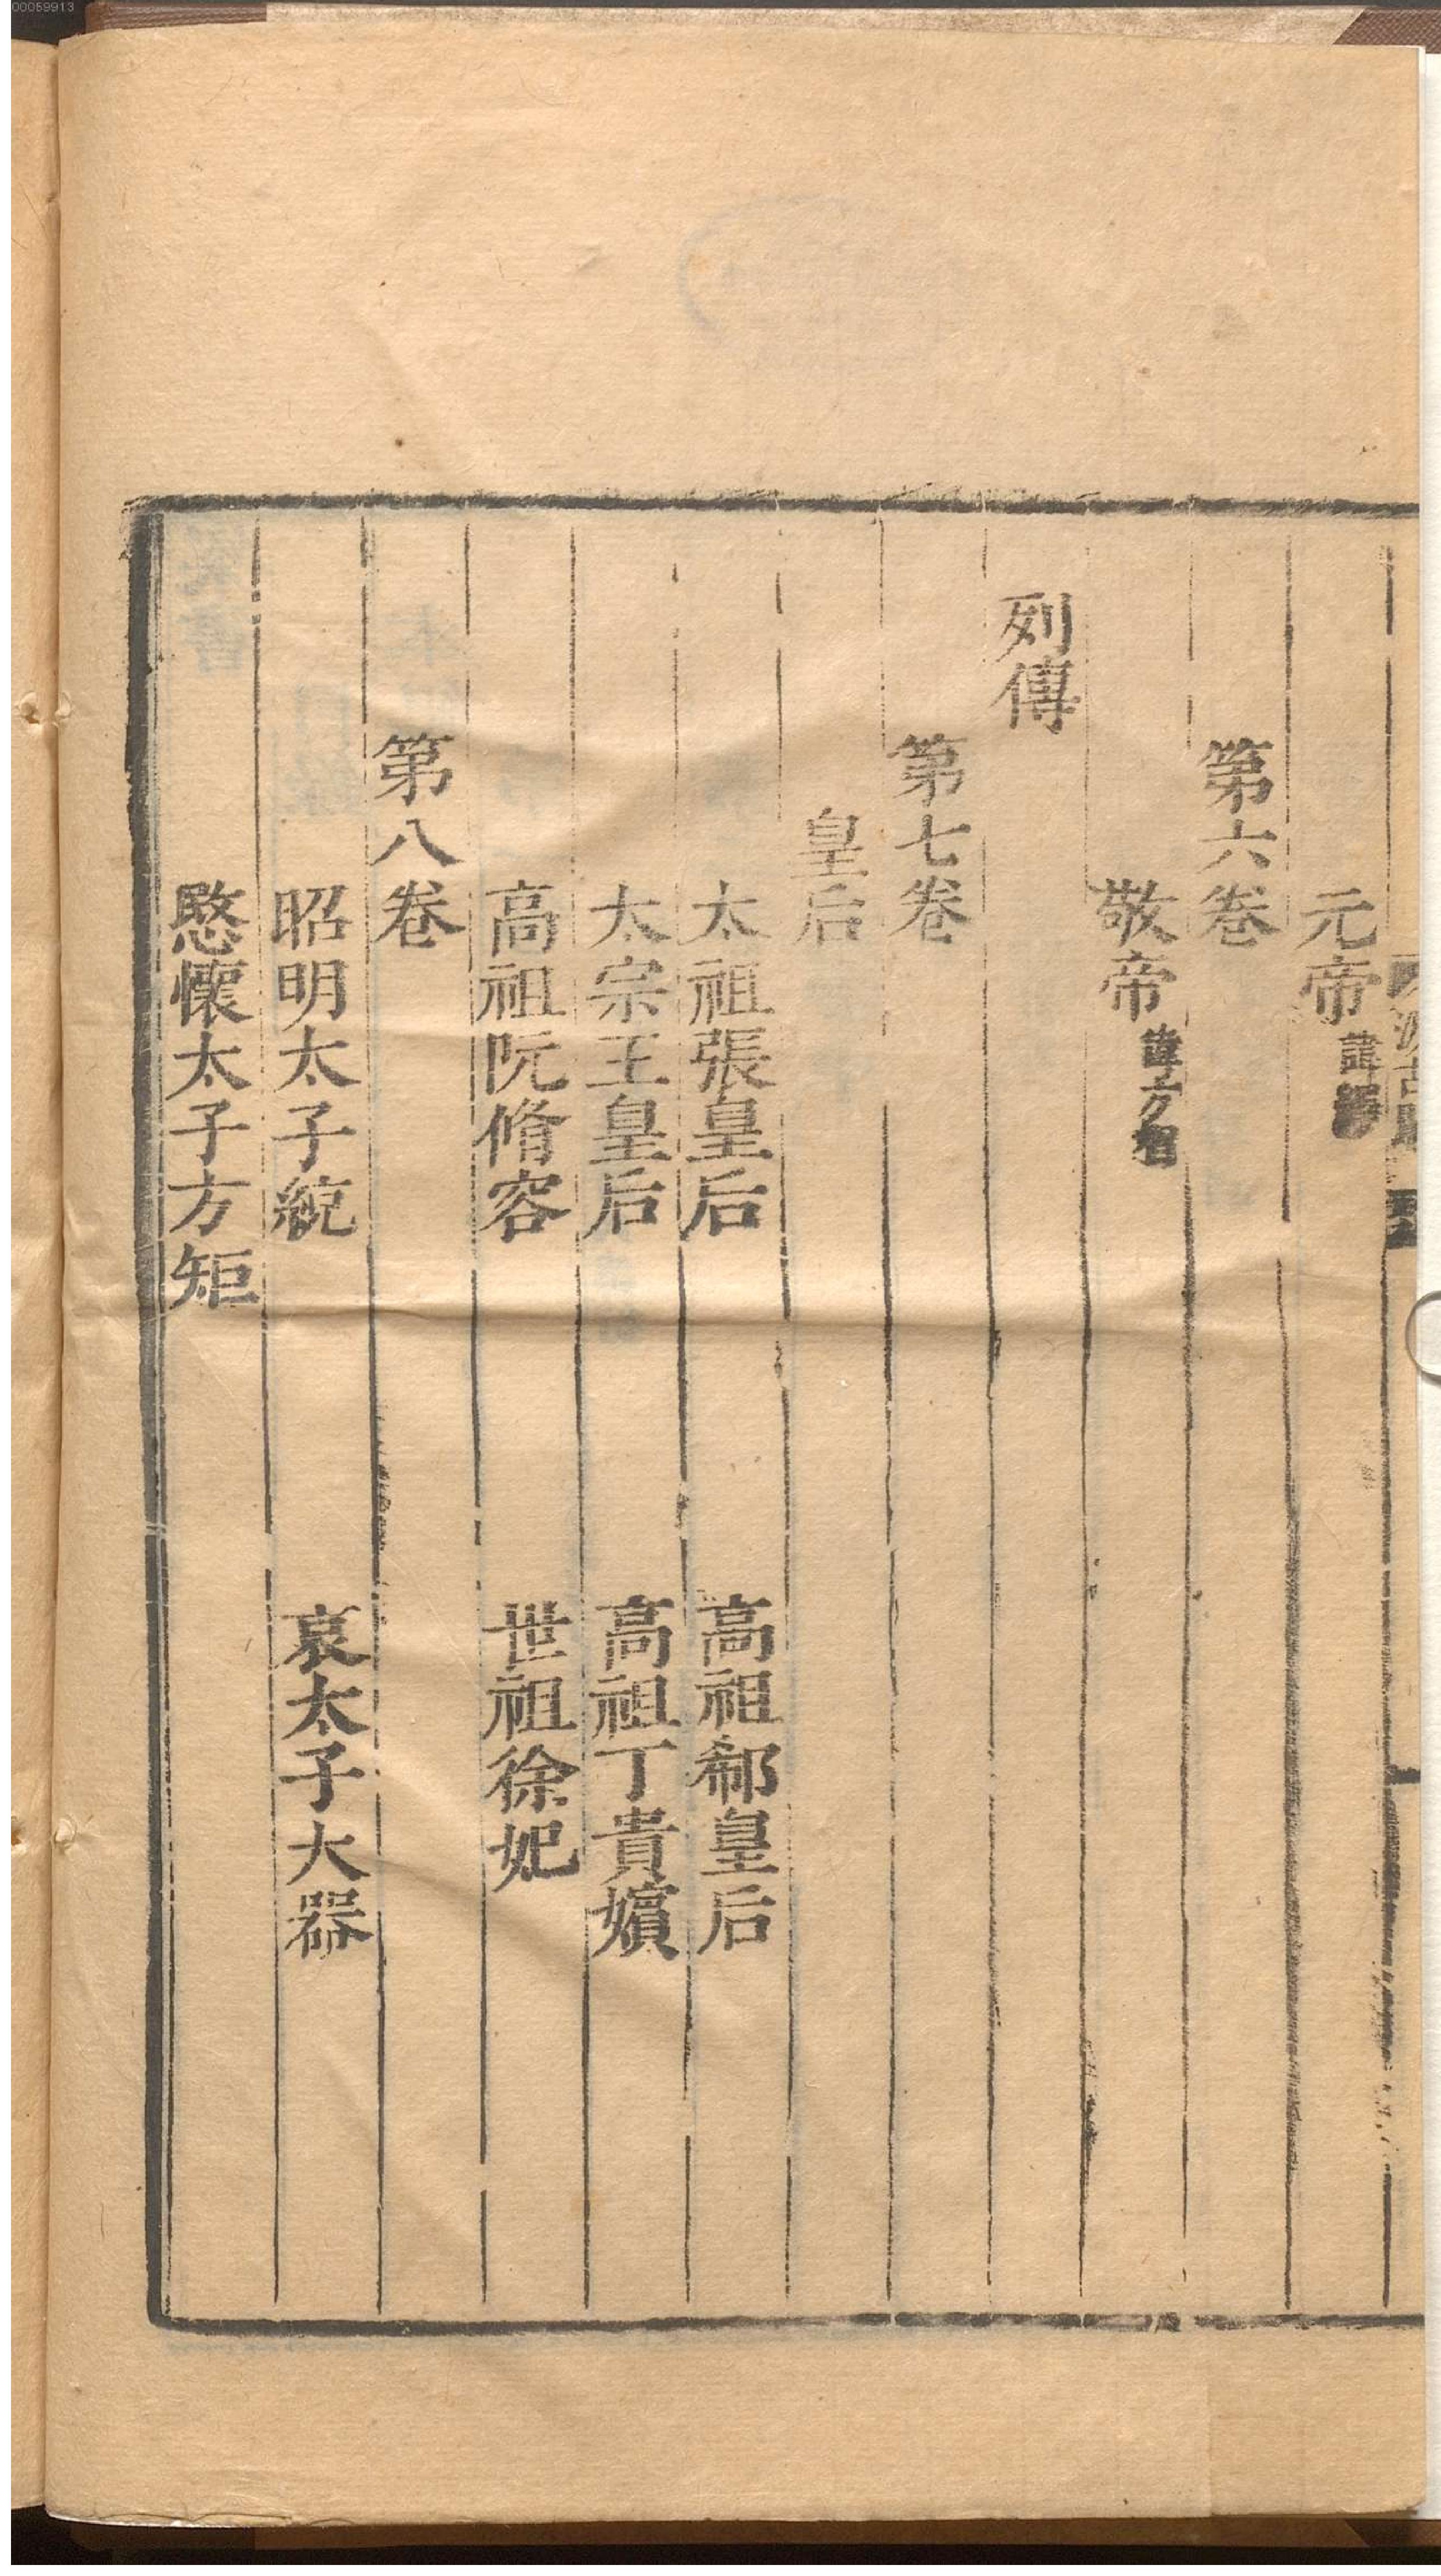 00059913
元帝 諱繹
第六卷
敬帝 諱方智
列傳
第七卷
皇后
太祖張皇后 高祖郗皇后
太宗王皇后 高祖丁貴嬪
高祖阮脩容 世祖徐妃
第八卷
昭明太子統 哀太子大器
愍懷太子方矩